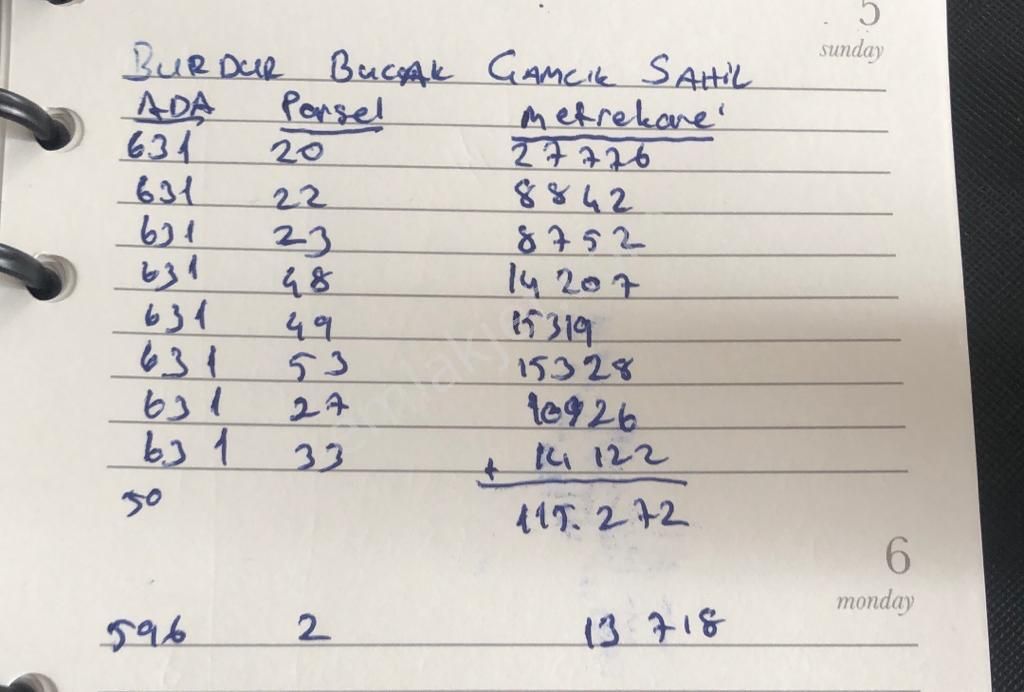 5
sunday
BURDUR BUCAK CAMCIK SAHİL
ADA Parsel Metrekare
631 20 27776
631 22 8842
631 23 8752
631 48 14207
631 49 15319
631 53 15328
631 27 10926
631 33 + 14122
50 115.272
6
monday
596 2 13718